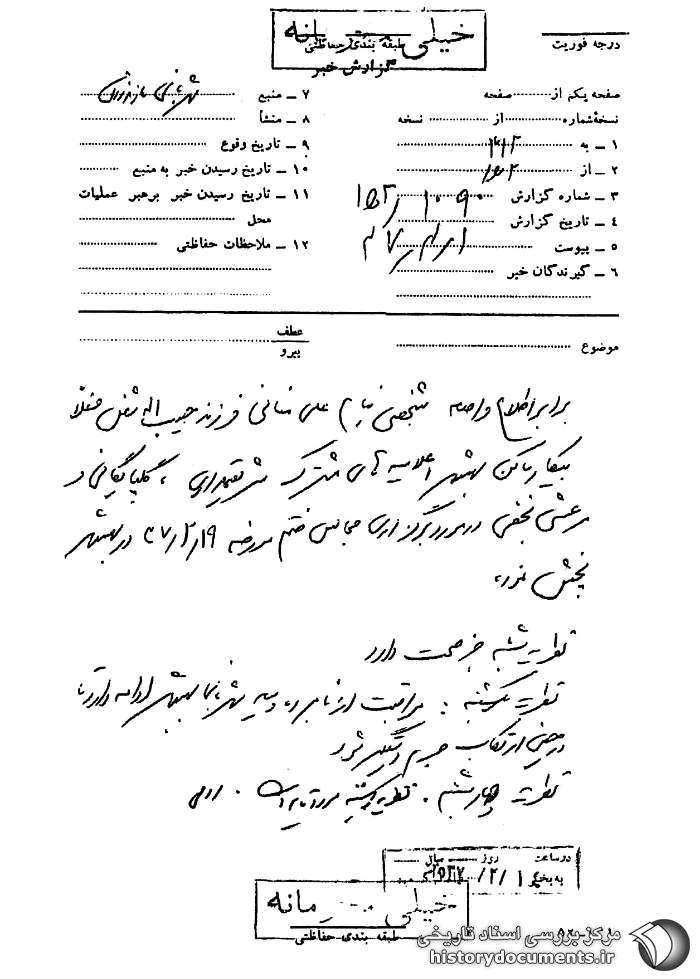 خیلی محرمانه
طبقه بندی حفاظتی
گزارش خبر
درجه فوریت
صفحه یکم از صفحه
نسخهٔ شماره از نسخه
۱ ـ به ۳۱۲
۲ ـ از
۳ ـ شماره گزارش
۴ ـ تاریخ گزارش
۵ ـ پیوست
۶ ـ گیرندگان خبر
۷ ـ منبع شهربانی مازندران
۸ ـ منشأ
۹ ـ تاریخ وقوع
۱۰ ـ تاریخ رسیدن خبر به منبع
۱۱ ـ تاریخ رسیدن خبر برهبر عملیات
محل
۱۲ ـ ملاحظات حفاظتی
موضوع
عطف
پیرو
برابر اطلاع واصله شخصی بنام علی فرزند حبیب اله شغل فعلاً
بیکار ساکن بهشهر اعلامیه های مشترک شریعتمداری ، گلپایگانی و
مرعشی نجفی در مورد برگزاری مجالس ختم مورخه ۳۷/۲/۱۹ در بهشهر
پخش نموده
نظریه شنبه خبر صحت دارد
نظریه یکشنبه : مراقبت از نامبرده وسیله شهربانی بهشهر ادامه دارد تا
در حین ارتکاب جرم دستگیر شود
نظریه چهارشنبه . نظریه یکشنبه مورد تایید است .
در ساعت روز سال
به بخش
خیلی محرمانه
طبقه بندی حفاظتی
مرکز بررسی اسناد تاریخی
historydocuments.ir